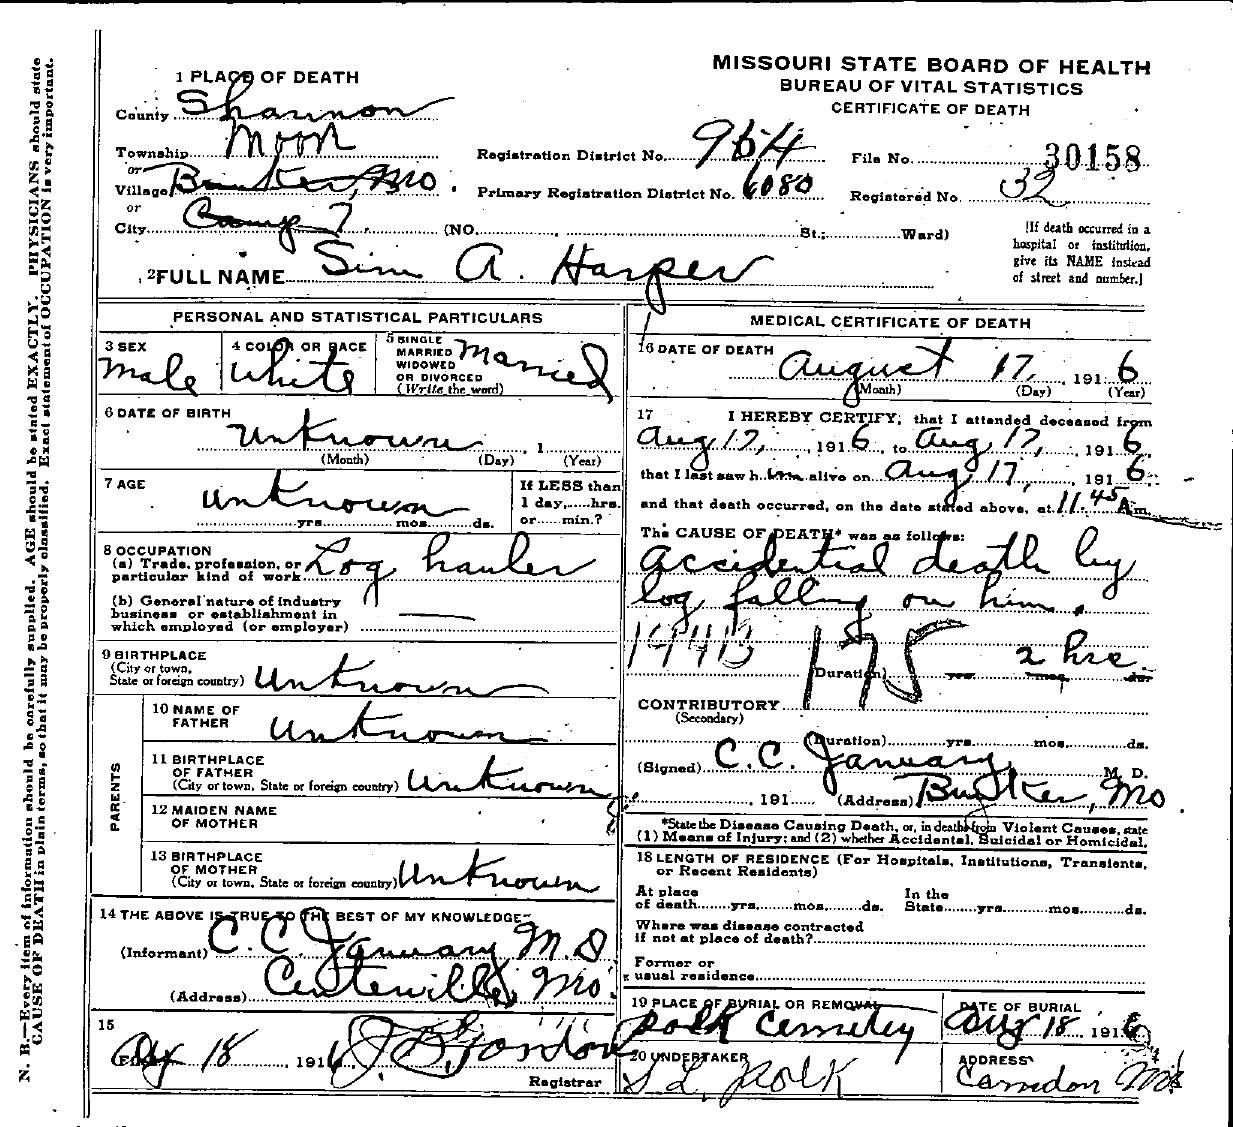 N. B.—Every item of information should be carefully supplied. AGE should be stated EXACTLY. PHYSICIANS should state
CAUSE OF DEATH in plain terms, so that it may be properly classified. Exact statement of OCCUPATION is very important.
MISSOURI STATE BOARD OF HEALTH
BUREAU OF VITAL STATISTICS
CERTIFICATE OF DEATH
1 PLACE OF DEATH
County Shannon
Township Moon
or
Village Bunker, Mo.
or
City Camp 7. (NO. St.; Ward)
Registration District No. 964
Primary Registration District No. 6080
File No. 30158
Registered No. 32
[If death occurred in a
hospital or institution,
give its NAME instead
of street and number.]
2 FULL NAME Sim A. Harper
PERSONAL AND STATISTICAL PARTICULARS
3 SEX Male
4 COLOR OR RACE White
5 SINGLE
MARRIED
WIDOWED
OR DIVORCED
(Write the word) Married
6 DATE OF BIRTH
Unknown , 1
(Month) (Day) (Year)
7 AGE
Unknown
yrs. mos. ds.
If LESS than
1 day, hrs.
or min.?
8 OCCUPATION
(a) Trade, profession, or
particular kind of work Log hauler
(b) General nature of industry
business or establishment in
which employed (or employer)
9 BIRTHPLACE
(City or town,
State or foreign country) Unknown
PARENTS
10 NAME OF
FATHER Unknown
11 BIRTHPLACE
OF FATHER
(City or town, State or foreign country) Unknown
12 MAIDEN NAME
OF MOTHER
13 BIRTHPLACE
OF MOTHER
(City or town, State or foreign country) Unknown
14 THE ABOVE IS TRUE TO THE BEST OF MY KNOWLEDGE
(Informant) C. C. January M. D
(Address) Centerville, Mo.
15
Aug 18, 1916 J. B. Gordon
Registrar
MEDICAL CERTIFICATE OF DEATH
16 DATE OF DEATH
August 17, 1916
(Month) (Day) (Year)
17 I HEREBY CERTIFY, that I attended deceased from
Aug, 17, 1916, to Aug, 17, 1916,
that I last saw him alive on Aug, 17, 1916
and that death occurred, on the date stated above, at 11.45 A m.
The CAUSE OF DEATH* was as follows:
Accidential death by
log falling on him.
175
(Duration) yrs. mos. ds. 2 hrs.
CONTRIBUTORY
(Secondary)
(Duration) yrs. mos. ds.
(Signed) C. C. January, M. D.
, 191 (Address) Bunker, Mo.
*State the Disease Causing Death, or, in deaths from Violent Causes, state
(1) Means of Injury; and (2) whether Accidental, Suicidal or Homicidal.
18 LENGTH OF RESIDENCE (For Hospitals, Institutions, Transients,
or Recent Residents)
At place
of death yrs. mos. ds.
In the
State yrs. mos. ds.
Where was disease contracted
if not at place of death?
Former or
usual residence
19 PLACE OF BURIAL OR REMOVAL
Polk Cemetery
DATE OF BURIAL
Aug 18, 1916
20 UNDERTAKER
S L Polk
ADDRESS
Camdon Mo